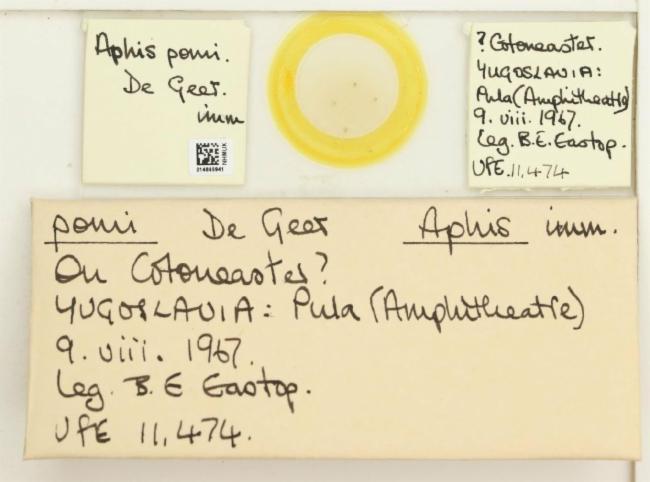 Aphis pomi.
De Geer.
imm
NHMUK
014885941
? Cotoneaster.
YUGOSLAVIA:
Pula (Amphitheatre)
9. viii. 1967.
Leg. B.E. Eastop.
VFE. 11,474
pomi De Geer Aphis imm.
On Cotoneaster?
YUGOSLAVIA: Pula (Amphitheatre)
9. viii. 1967.
Leg. B. E Eastop.
VFE 11,474.